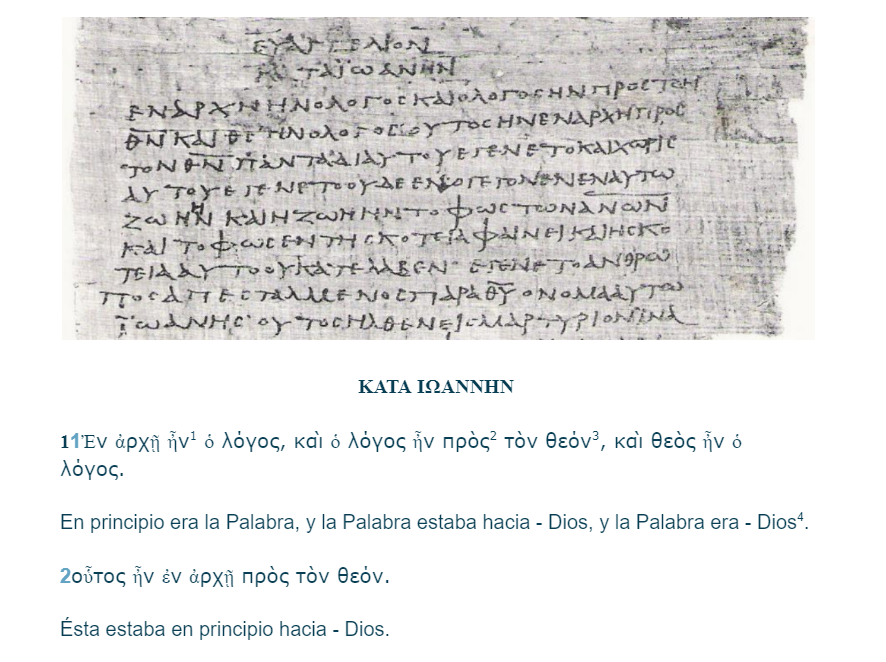 ΕΥΑΓΓΕΛΙΟΝ
ΚΑΤΑΪΩΑΝΝΗΝ
ΕΝΑΡΧΗΗΝΟΛΟΓΟϹΚΑΙΟΛΟΓΟϹΗΝΠΡΟϹΤΟΝ
ΘΝΚΑΙΘϹΗΝΟΛΟΓΟϹΟΥΤΟϹΗΝΕΝΑΡΧΗΠΡΟϹ
ΤΟΝΘΝΠΑΝΤΑΔΙΑΥΤΟΥΕΓΕΝΕΤΟΚΑΙΧΩΡΙϹ
ΑΥΤΟΥΕΓΕΝΕΤΟΟΥΔΕΕΝΟΓΕΓΟΝΕΝΕΝΑΥΤΩ
ΖΩΗΗΝΚΑΙΗΖΩΗΗΝΤΟΦΩϹΤΩΝΑΝΩΝ
ΚΑΙΤΟΦΩϹΕΝΤΗϹΚΟΤΕΙΑΦΑΙΝΕΙΚΑΙΗϹΚΟ
ΤΕΙΑΑΥΤΟΟΥΚΑΤΕΛΑΒΕΝ·ΕΓΕΝΕΤΟΑΝΘΡΩ
ΠΟϹΑΠΕϹΤΑΛΜΕΝΟϹΠΑΡΑΘΥΟΝΟΜΑΑΥΤΩ
ΪΩΑΝΗϹ·ΟΥΤΟϹΗΛΘΕΝΕΙϹΜΑΡΤΥΡΙΟΝΙΝΑ
ΚΑΤΑ ΙΩΑΝΝΗΝ
11Ἐν ἀρχῇ ἦν1 ὁ λόγος, καὶ ὁ λόγος ἦν πρὸς2 τὸν θεόν3, καὶ θεὸς ἦν ὁ
λόγος.
En principio era la Palabra, y la Palabra estaba hacia - Dios, y la Palabra era - Dios4.
2οὗτος ἦν ἐν ἀρχῇ πρὸς τὸν θεόν.
Ésta estaba en principio hacia - Dios.